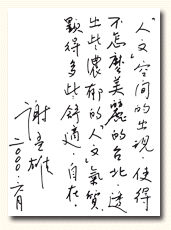 「人文」空間的出現，使得
不怎麼美麗的台北，透
出些濃郁的「人文」氣質，
顯得多些舒適、自在。
謝
雄
二〇〇〇、六月